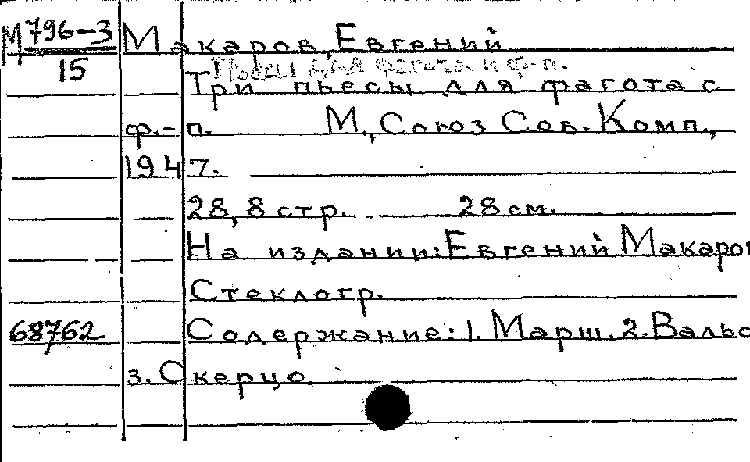 М 796-3 Макаров, Евгений
15 Пьесы для фагота и ф-п.
Три пьесы для фагота с
ф.-п. М., Союз Сов. Комп.,
1947.
28, 8 стр. 28 см.
На издании: Евгений Макаров
Стеклогр.
68762 Содержание: 1. Марш. 2. Вальс
3. Скерцо.